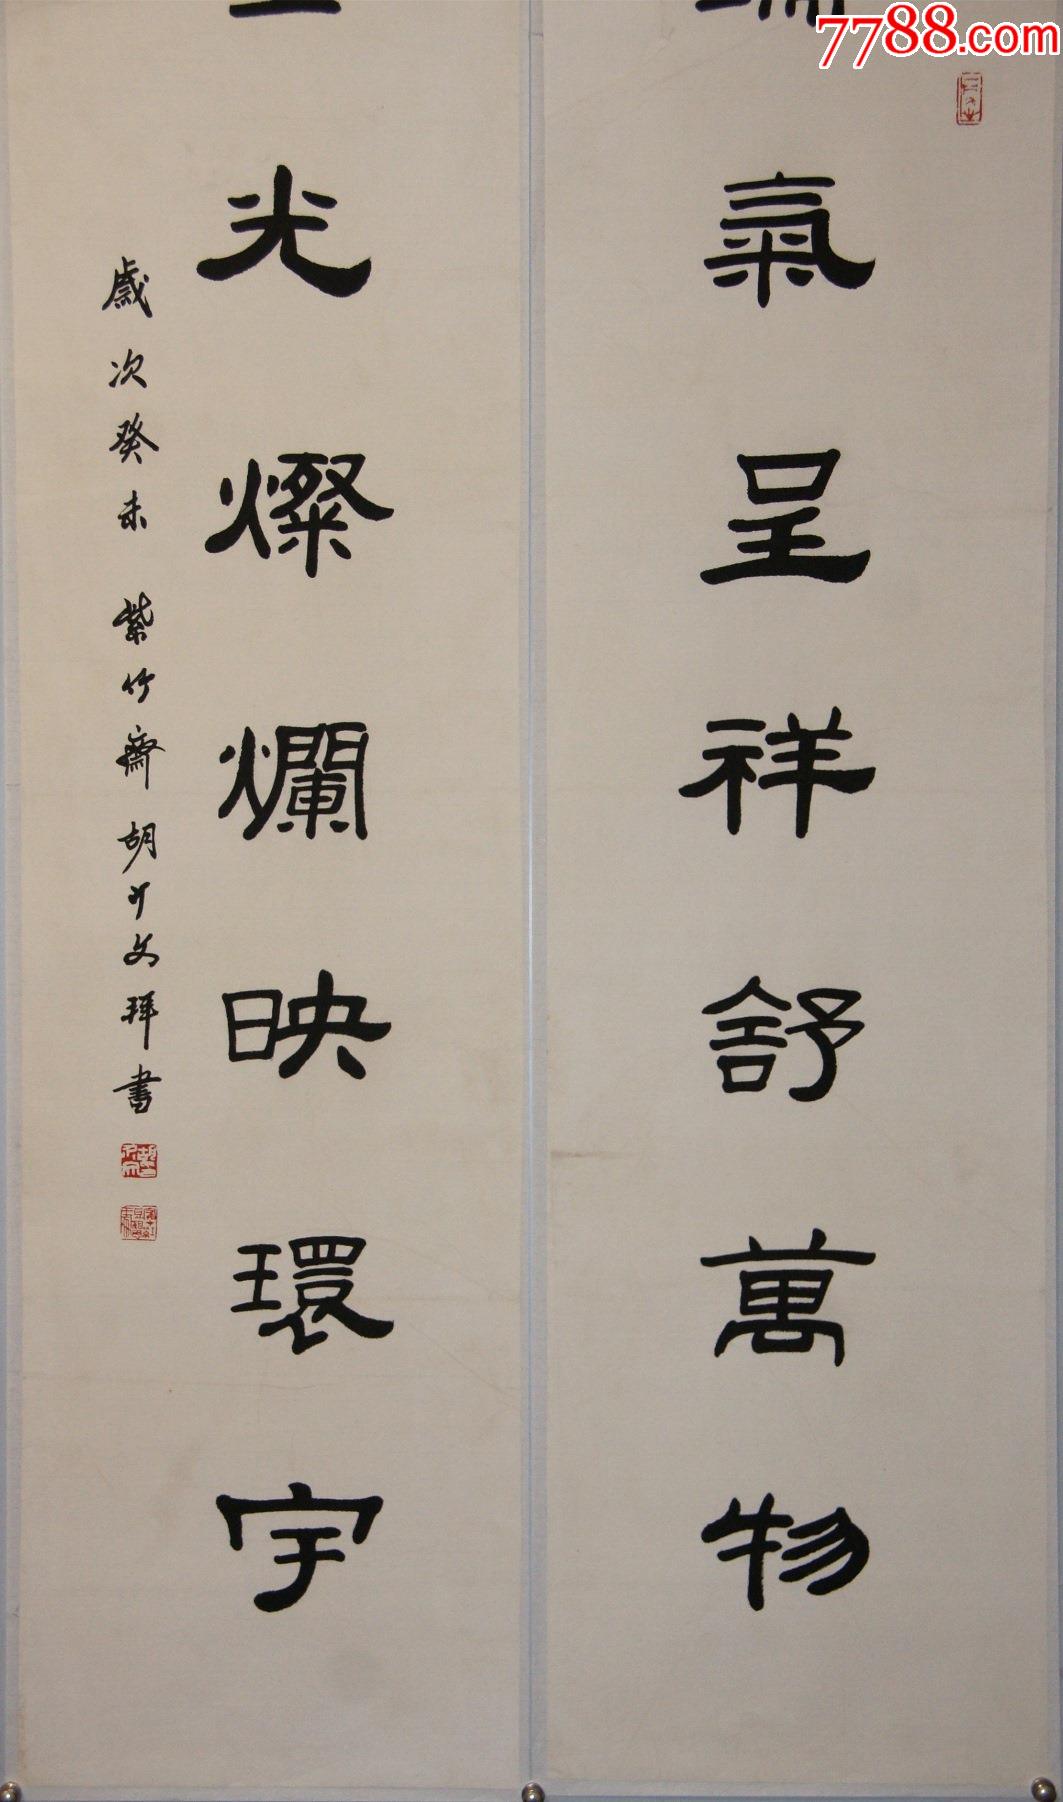 7788.com
氣呈祥舒萬物
光燦爛映環宇
歲次癸未 紫竹齋 胡文拜書